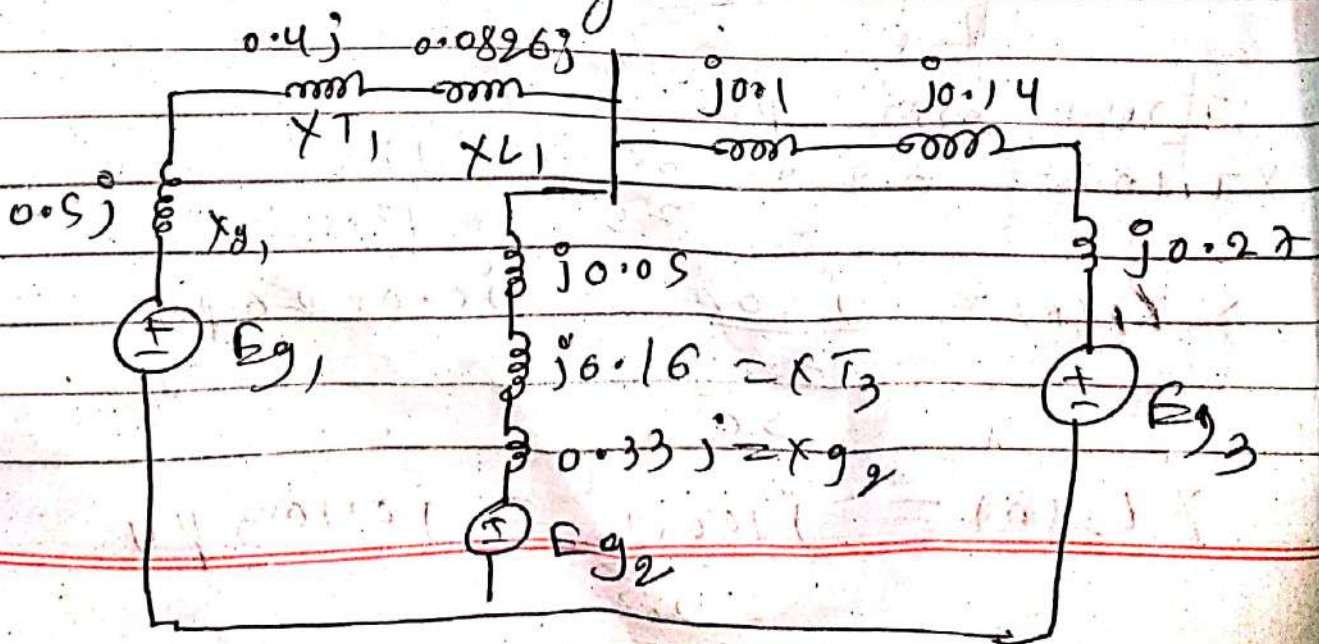 0.4j 0.0826j
XT1 XL1
j0.1 j0.14
0.5j Xg1
j0.05
j0.27
Eg1
j0.16 = XT3
0.33j = Xg2
Eg3
Eg2